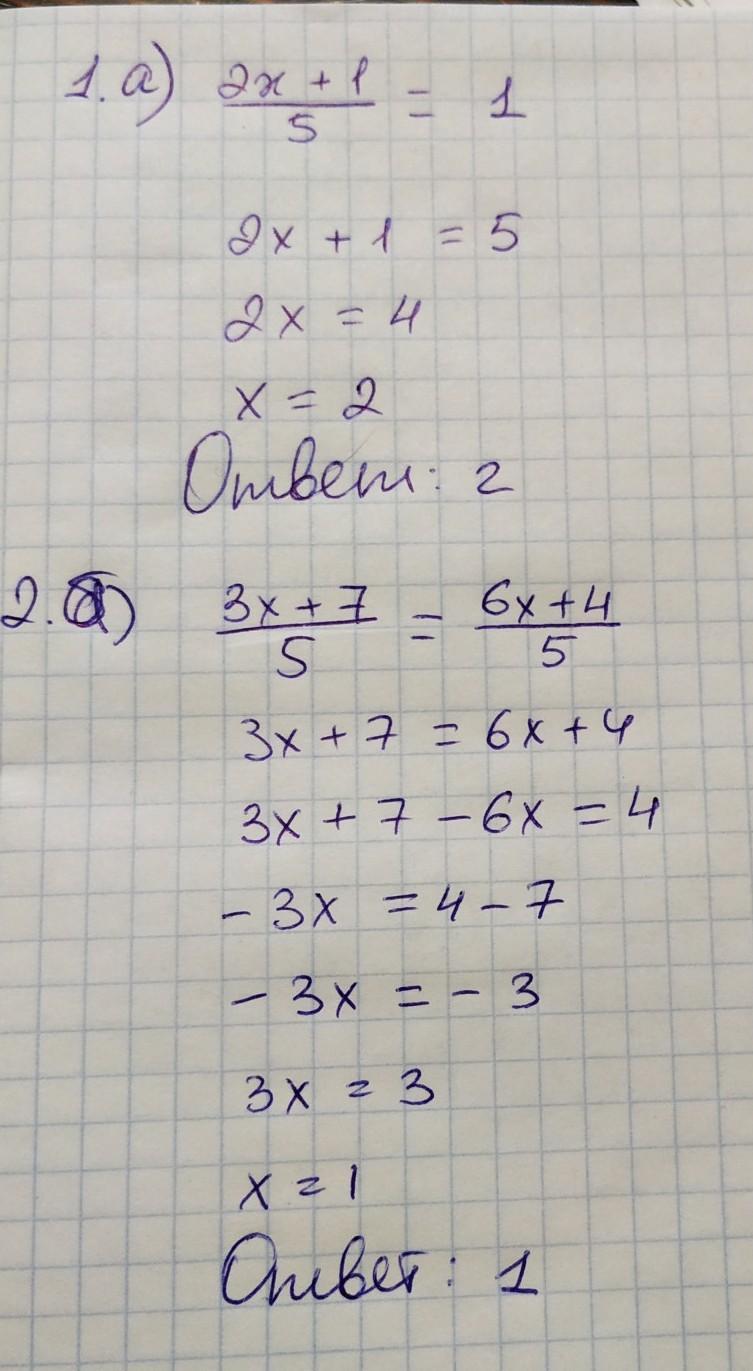 1. а) (2x + 1)/5 = 1
2x + 1 = 5
2x = 4
x = 2
Ответ: 2
2. б) (3x + 7)/5 = (6x + 4)/5
3x + 7 = 6x + 4
3x + 7 - 6x = 4
- 3x = 4 - 7
- 3x = - 3
3x = 3
x = 1
Ответ: 1